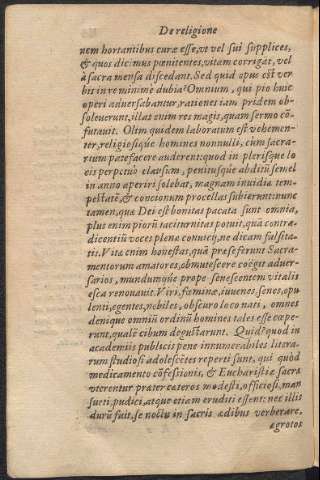 De religione
nem hortantibus curæ esse, vt vel sui supplices,
& quos dicimus pœnitentes, vitam corrigāt, vel
à sacra mensa discedant. Sed quid opus est ver
bis in re minimè dubia? Omnium, qui pio huic
operi aduersabantur, rationes iam pridem ob-
soleuerunt, illas enim res magis, quam sermo cō-
futauit. Olim quidem laboratum est vehemen-
ter, religiosique homines nonnulli, cùm sacra-
rium patefacere auderent: quod in plerisque lo
cis perpetuò clausum, penitusque abditū semel
in anno aperiri solebat, magnam inuidiæ tem-
pestatē, & concionum procellas subierunt: nunc
tamen, qua Dei est bonitas pacata sunt omnia,
plus enim piorū taciturnitas potuit, quā contra-
dicentiū voces plenæ conuicij, ne dicam falsita-
tis. Vita enim honestas, quā præse ferunt Sacra-
mentorum amatores, obmutescere coëgit aduer-
sarios, mundumque prope senescentem vitali
esca renouauit. Viri, fœminæ, iuuenes, senes, opu
lenti, egentes, nobiles, obscuro loco nati, omnes
denique omniū ordinū homines tales esse cape-
runt, qualē cibum degustarunt. Quid? quod in
academijs publicis penè innumerabiles litera-
rum studiosi adolescētes reperti sunt, qui quòd
medicamento cōfessionis, & Eucharistiæ sacræ
vterentur præter cæteros modesti, officiosi, man
sueti, pudici, atque etiam eruditi essent: nec illis
durū fuit, se noctu in sacris ædibus verberare,
ægrotos